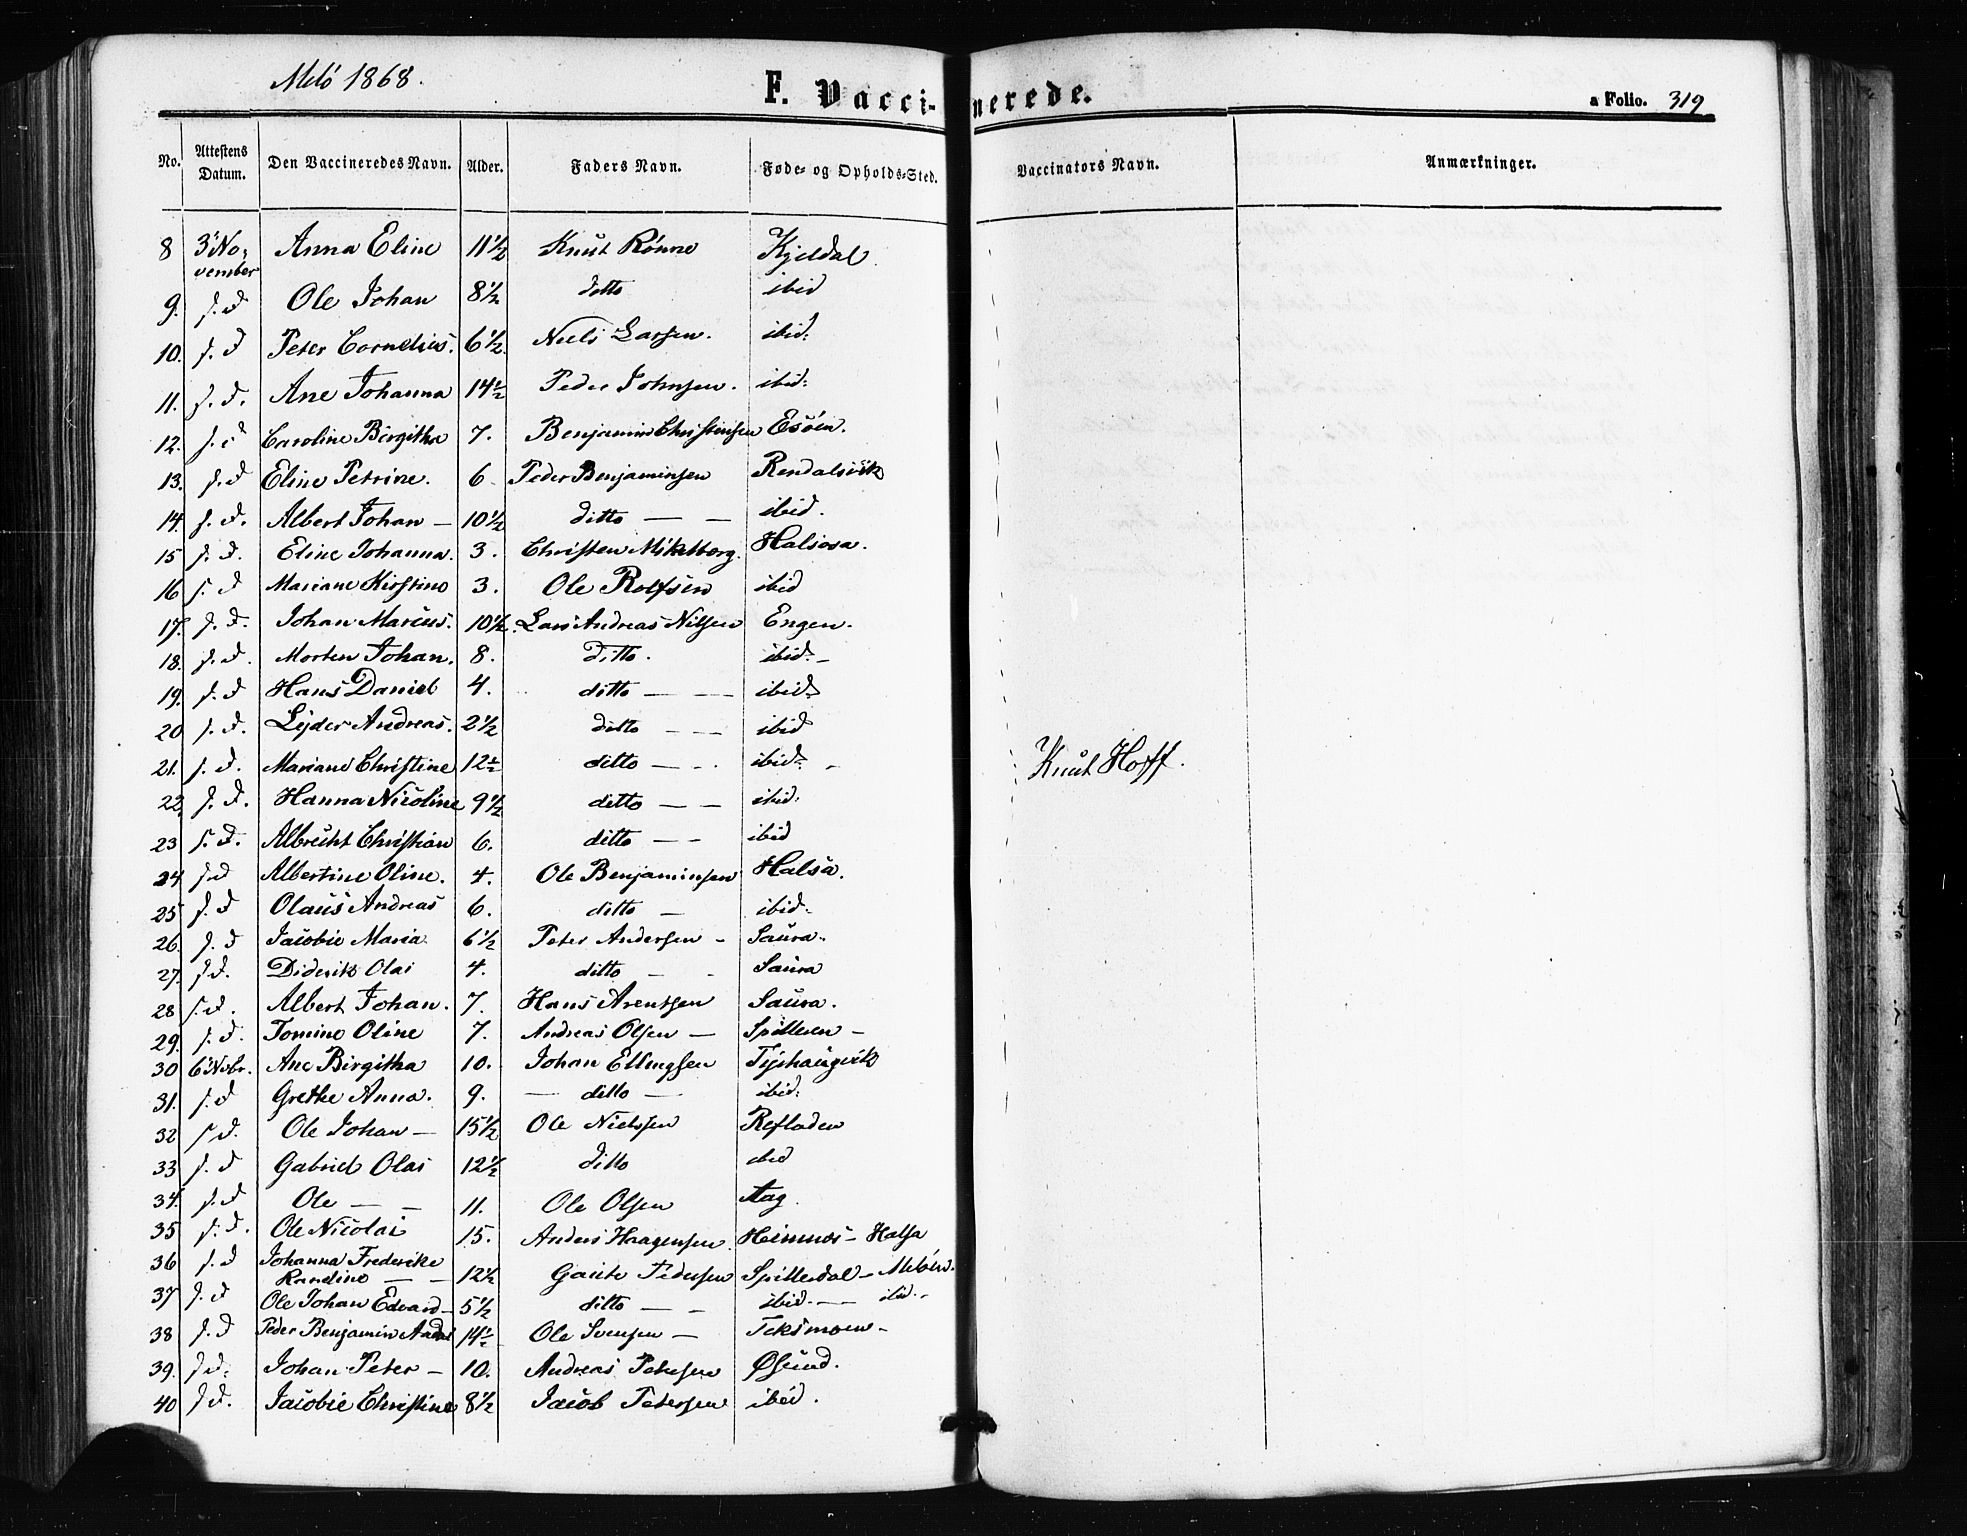 Melö 1868.
F. Vaccinerede.
a Folio. 319
No. Attestens Datum. Den Vaccineredes Navn. Alder. Faders Navn. Føde- og Opholds-Sted. Vaccinators Navn. Anmærkninger.
8 3 No-vember Anna Eline 11 1/2 Knut Rönne Kjeldal
9. s. d Ole Johan 8 1/2 ditto ibid
10. s. d Peter Cornelius. 6 1/2 Niels Larsen. ibid:
11. s. d. Ane Johanna 14 1/2 Peder Johnsen. ibid:
12. s. d Caroline Birgitha 7. Benjamin Christensen Esöen.
13. s. d Eline Petrine. 6 Peder Benjaminsen Rendalsvik
14. s. d. Albert Johan — 10 1/2 ditto — — ibid.
15 s. d. Eline Johanna. 3. Christen Mikelborg. Halsosa.
16 s. d Mariane Kirstine 3. Ole Rolfsen ibid
17. s. d. Johan Marius. 10 1/2. Lars Andreas Nilsen Engen.
18. s. d. Morten Johan. 8. Ditto. ibid: -
19. s. d Hans Daniel 4. ditto — — ibid:
20 s. d. Lejder Andreas. 2 1/2 ditto — — ibid
21. s. d. Mariane Christine 12 1/2 ditto — - . ibid: - Knut Hoff.
22 s. d. Hanna Nicoline 9 1/2 ditto — — ibid:
23 s. d. Albrecht Christian 6. ditto — - ibid
24 s. d Albertine Oline. 4. Ole Benjaminsen Halsa.
25 s. d Olaus Andreas 6. ditto — ibid:
26. s. d Jacobie Maria. 6 1/2 Peter Andersen - Saura.
27. s. d. Diderik Olai 4. ditto — - Saura
28 s. d. Albert Johan. 7. Hans Arentsen Saura.
29. s. d. Tomine Oline 7. Andreas Olsen — Spilderen -
30 6 Nobr. Ane Birgitha 10. Johan Ellingsen
31. s. d Grethe Anna. 9. — ditto — ibid:
32 s. d. Ole Johan — 15 1/2 Ole Nielssen Refladen
33 s. d Gabriel Olai 12 1/2 ditto ibid
34. s. d Ole — — 11. Ole Olsen Aag
35 s. d. Ole Nicolai 15. Anders Haagensen. Heimnes - Halsa
36 s. d Johanna Frederike Randine — — 12 1/2 Gaute Pedersen Spilderdal - Melöen.
37 s. d Ole Johan Edvard - 5 1/2 ditto — - ibid. — ibid. -
38 s. d Peder Benjamin 14 1/2 Ole Svensen — Teksmoen -
39. s. d. Johan Peter - 10. Andreas Petersen Øsund.
40 s. d. Jacobie Christine 8 1/2 Jacob Petersen ibid.